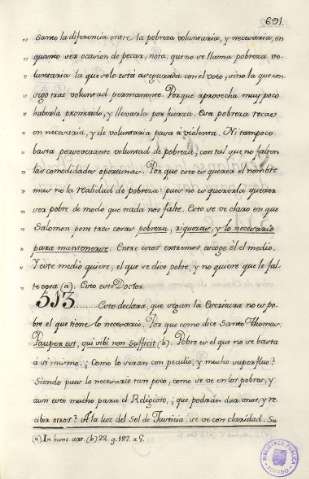 691.
" Santo la diferencia entre la pobreza voluntaria, y necesaria, en
" quanto ver ocasion de pecar, nota, que no se llama pobreza vo-
" luntaria la que solo está arraigada con el voto, sino la que
" sigo tras voluntad permanente. Porque aprovecha muy poco
" haberla prometido, y llevarla por fuerza. Esta pobreza recae
" en necesaria, y de voluntaria pasa a violenta. Ni tampoco
" basta perseverante voluntad de pobreza, con tal que no falten
" las comodidades oportunas. Porque esto es querer el nombre
" mas no la realidad de pobreza: pues no es quererla querer
" ser pobre de modo que nada nos falte. Esto se ve claro en que
" Salomon pone tres cosas, pobreza, riquezas, y lo necesario
" para mantenerse. Entre unos extremos, escoge él el medio.
" Y este medio quiere, el que se dice pobre, y no quiere que le fal-
" te (a). Esto este Doctor.
513 Esto declara, que segun la Escritura no es po-
bre el que tiene lo necesario. Porque como dice Santo Thomas:
Pauper est, qui sibi non sufficit (b). Pobre es el que no se basta
a si mismo. ¿Como lo serán con peculio, y mucho superfluo?
Siendo pues lo necesario tan poco, como se ve en los pobres, y
aun esto mucho para el Religioso, ¿que podrán dar mas, y re-
cibir error? A la luz del Sol de Justicia se ve con claridad. Su
(a) In hunc (b) 22. q. 187. a 5.
BIBLIOTECA PUBLICA